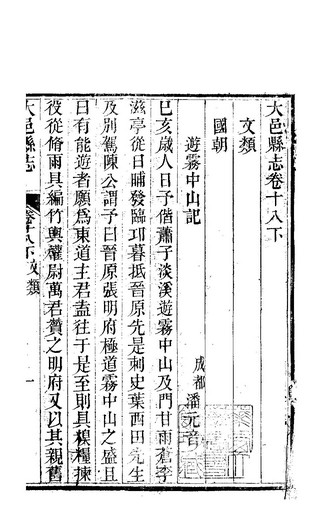 大邑縣志卷十八下
文類
國朝
遊霧中山記
成都潘元音
巳亥歲人日予偕蕭子淡溪遊霧中山及門甘雨蒼李
滋亭從日晡發臨邛暮抵晉原先是刺史葉酉田先生
及別駕陳公謂予曰晉原張明府極道霧中山之盛且
曰有能遊者願為東道主君盍往于是至則具糗糧揀
役從脩雨具編竹輿韓尉萬君贊之明府又以其親舊
大邑縣志
卷十八下文類
一